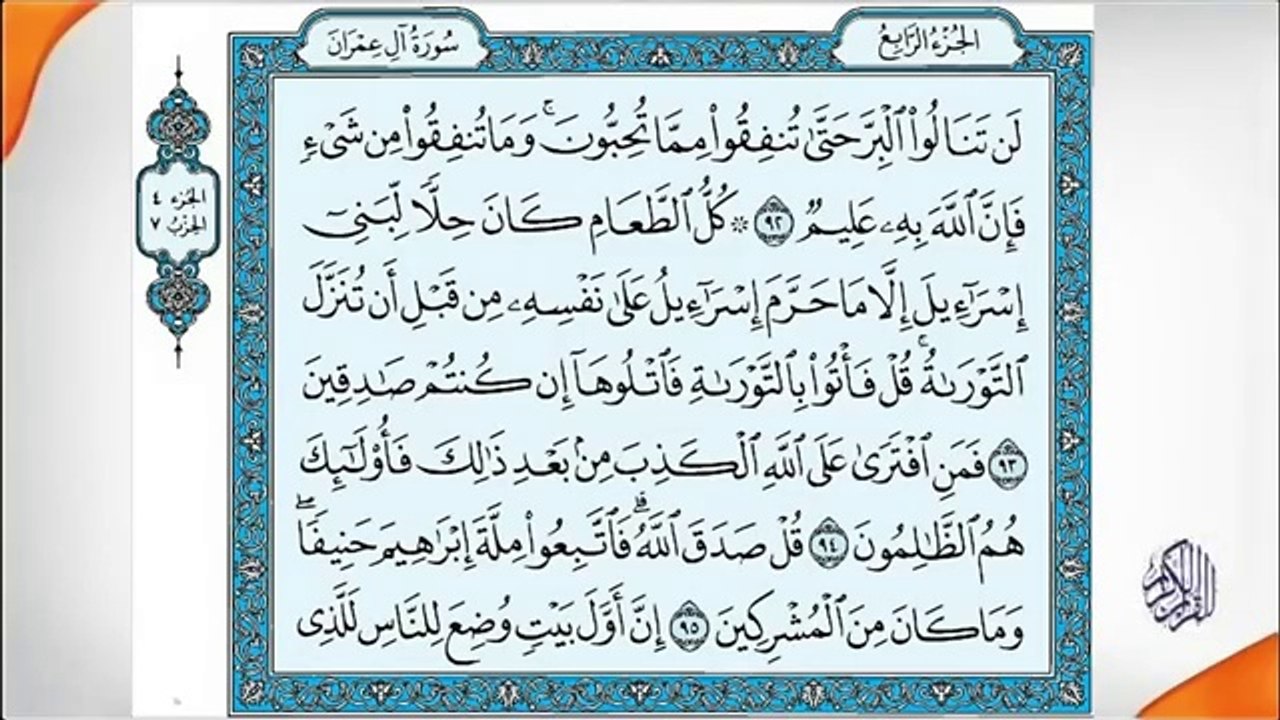 الجُزْءُ الرَّابِعُ
سُورَةُ آلِ عِمْرَانَ
لَن تَنَالُوا۟ ٱلْبِرَّ حَتَّىٰ تُنفِقُوا۟ مِمَّا تُحِبُّونَ ۚ وَمَا تُنفِقُوا۟ مِن شَىْءٍ
فَإِنَّ ٱللَّهَ بِهِۦ عَلِيمٌ ٩٢ ۞ كُلُّ ٱلطَّعَامِ كَانَ حِلًّا لِّبَنِىٓ
إِسْرَٰٓءِيلَ إِلَّا مَا حَرَّمَ إِسْرَٰٓءِيلُ عَلَىٰ نَفْسِهِۦ مِن قَبْلِ أَن تُنَزَّلَ
ٱلتَّوْرَىٰةُ ۚ قُلْ فَأْتُوا۟ بِٱلتَّوْرَىٰةِ فَٱتْلُوهَآ إِن كُنتُمْ صَٰدِقِينَ
٩٣ فَمَنِ ٱفْتَرَىٰ عَلَى ٱللَّهِ ٱلْكَذِبَ مِنۢ بَعْدِ ذَٰلِكَ فَأُو۟لَٰٓئِكَ
هُمُ ٱلظَّٰلِمُونَ ٩٤ قُلْ صَدَقَ ٱللَّهُ ۗ فَٱتَّبِعُوا۟ مِلَّةَ إِبْرَٰهِيمَ حَنِيفًا ۖ
وَمَا كَانَ مِنَ ٱلْمُشْرِكِينَ ٩٥ إِنَّ أَوَّلَ بَيْتٍ وُضِعَ لِلنَّاسِ لَلَّذِى
الجزء ٤
الحزب ٧
القرآن الكريم